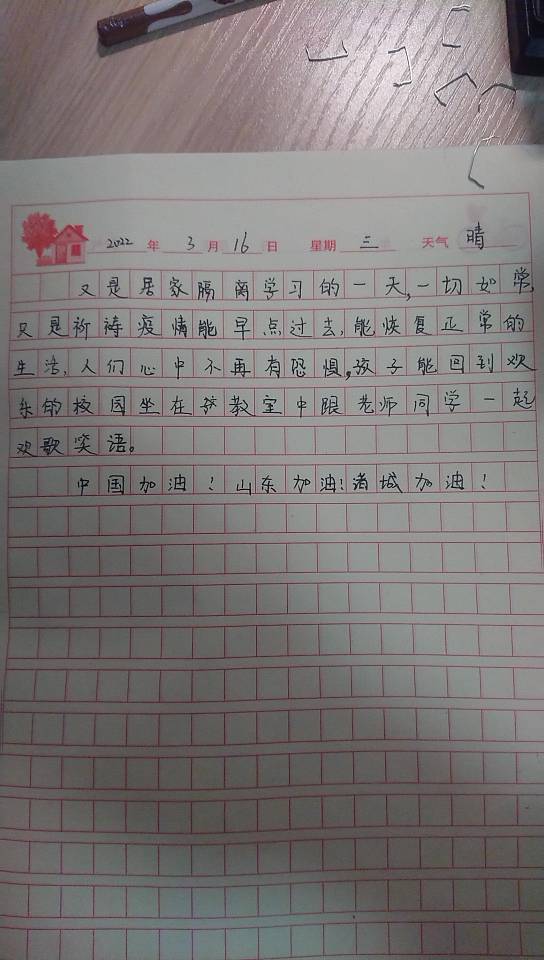 2022 年 3 月 16 日 星期 三 天气 晴
又是居家隔离学习的一天,一切如常,
又是祈祷疫情能早点过去,能恢复正常的
生活,人们心中不再有恐惧,孩子能回到欢
乐的校园坐在教室中跟老师同学一起
欢歌笑语。
中国加油！山东加油！诸城加油！